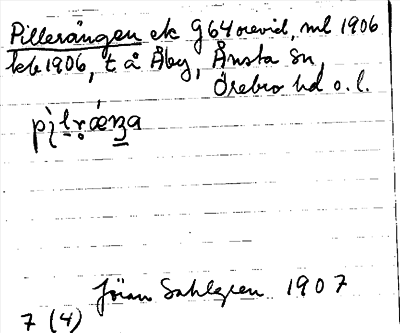 Pillerängen ek G64 orevid, ml 1906
kb 1906, t å Åby, Ånsta sn,
Örebro hd o. l.
pìlrǽŋa
Jöran Sahlgren 1907
7 (4)